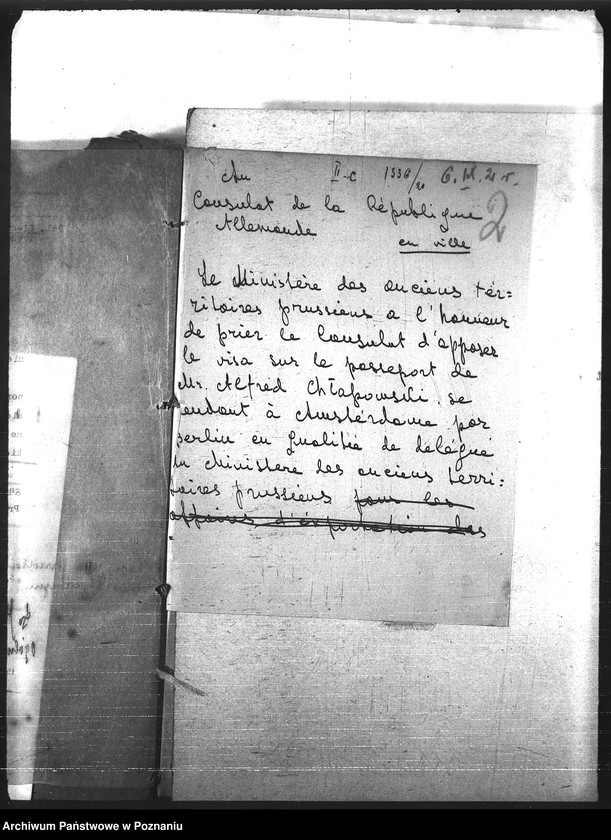 Au II-c 1536/20 6.VI.21 r.
2
Consulat de la République
Allemande
en ville
Le Ministère des anciens tér=
ritoires prussiens a l'honneur
de prier le Consulat d'apposer
le visa sur le passeport de
Mr. Alfred Chłapowski se
endant à Amsterdame par
Berlin en qualitié de délégué
du Ministère des anciens terri=
toires prussiens pour les
affaires d'éxportation des
Archiwum Państwowe w Poznaniu